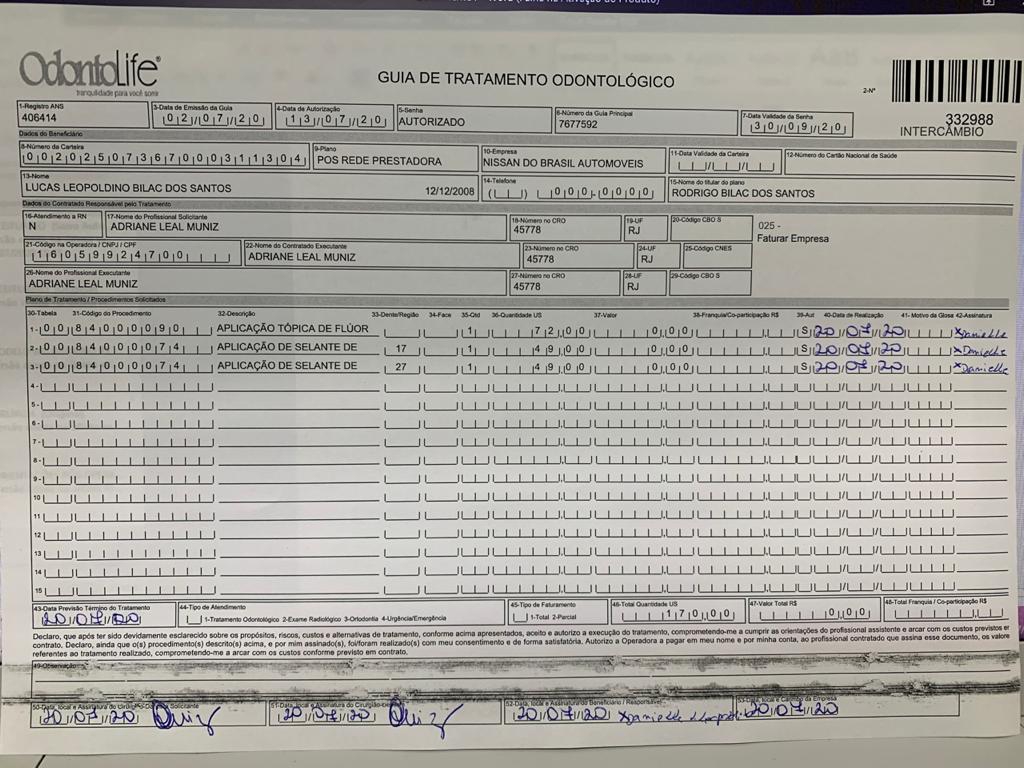 OdontoLife®
tranquilidade para você sorrir
GUIA DE TRATAMENTO ODONTOLÓGICO
2-Nº
332988
INTERCÂMBIO
1-Registro ANS
406414
3-Data de Emissão da Guia
02/07/20
4-Data de Autorização
13/07/20
5-Senha
AUTORIZADO
6-Número da Guia Principal
7677592
7-Data Validade da Senha
30/09/20
Dados do Beneficiário
8-Número da Carteira
00202507367000311304
9-Plano
POS REDE PRESTADORA
10-Empresa
NISSAN DO BRASIL AUTOMOVEIS
11-Data Validade da Carteira
12-Número do Cartão Nacional de Saúde
13-Nome
LUCAS LEOPOLDINO BILAC DOS SANTOS 12/12/2008
14-Telefone
( ) 000-0000
15-Nome do titular do plano
RODRIGO BILAC DOS SANTOS
Dados do Contratado Responsável pelo Tratamento
16-Atendimento a RN
N
17-Nome do Profissional Solicitante
ADRIANE LEAL MUNIZ
18-Número no CRO
45778
19-UF
RJ
20-Código CBO S
025 -
Faturar Empresa
21-Código na Operadora / CNPJ / CPF
16059924700
22-Nome do Contratado Executante
ADRIANE LEAL MUNIZ
23-Número no CRO
45778
24-UF
RJ
25-Código CNES
26-Nome do Profissional Executante
ADRIANE LEAL MUNIZ
27-Número no CRO
45778
28-UF
RJ
29-Código CBO S
Plano de Tratamento / Procedimentos Solicitados
30-Tabela 31-Código do Procedimento 32-Descrição 33-Dente/Região 34-Face 35-Qtd 36-Quantidade US 37-Valor 38-Franquia/Co-participação R$ 39-Aut 40-Data de Realização 41- Motivo da Glosa 42-Assinatura
1- 00 84000090 APLICAÇÃO TÓPICA DE FLÚOR 1 72,00 0,00 S 20/07/20 xDanielle
2- 00 84000074 APLICAÇÃO DE SELANTE DE 17 1 49,00 0,00 S 20/07/20 xDanielle
3- 00 84000074 APLICAÇÃO DE SELANTE DE 27 1 49,00 0,00 S 20/07/20 xDanielle
4-
5-
6-
7-
8-
9-
10
11
12
13
14
15
43-Data Previsão Término do Tratamento
20/07/20
44-Tipo de Atendimento
1-Tratamento Odontológico 2-Exame Radiológico 3-Ortodontia 4-Urgência/Emergência
45-Tipo de Faturamento
1-Total 2-Parcial
46-Total Quantidade US
170,00
47-Valor Total R$
0,00
48-Total Franquia / Co-participação R$
Declaro, que após ter sido devidamente esclarecido sobre os propósitos, riscos, custos e alternativas de tratamento, conforme acima apresentados, aceito e autorizo a execução do tratamento, comprometendo-me a cumprir as orientações do profissional assistente e arcar com os custos previstos em
contrato. Declaro, ainda que o(s) procedimento(s) descrito(s) acima, e por mim assinado(s), foi/foram realizado(s) com meu consentimento e de forma satisfatória. Autorizo a Operadora a pagar em meu nome e por minha conta, ao profissional contratado que assina esse documento, os valores
referentes ao tratamento realizado, comprometendo-me a arcar com os custos conforme previsto em contrato.
49-Observação
50-Data, local e Assinatura do Cirurgião-Dentista Solicitante
20/07/20
51-Data, local e Assinatura do Cirurgião-Dentista
20/07/20
52-Data, local e Assinatura do Beneficiário / Responsável
20/07/20 xDanielle
53-Data, local e Carimbo da Empresa
20/07/20